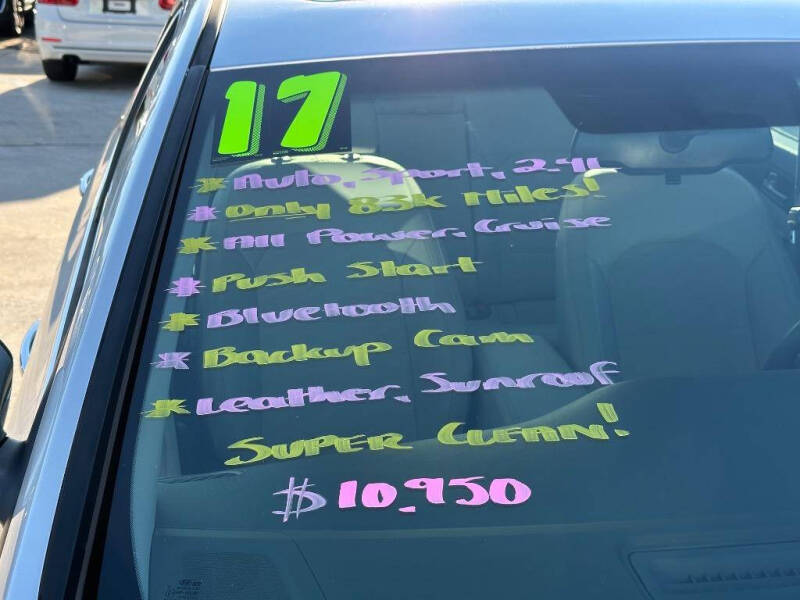 17
* Auto, Sport, 2.4L
* Only 83k Miles!
* All Power, Cruise
* Push Start
* Bluetooth
* Backup Cam
* Leather, Sunroof
Super Clean!
$10,950